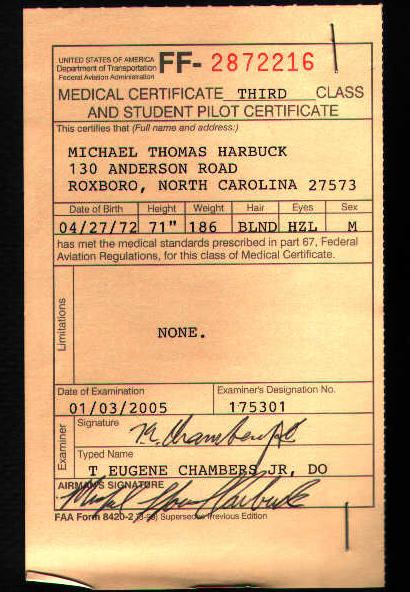 UNITED STATES OF AMERICA
Department of Transportation
Federal Aviation Administration
FF- 2872216
MEDICAL CERTIFICATE THIRD CLASS
AND STUDENT PILOT CERTIFICATE
This certifies that (Full name and address:)
MICHAEL THOMAS HARBUCK
130 ANDERSON ROAD
ROXBORO, NORTH CAROLINA 27573
Date of Birth Height Weight Hair Eyes Sex
04/27/72 71" 186 BLND HZL M
has met the medical standards prescribed in part 67, Federal
Aviation Regulations, for this class of Medical Certificate.
Limitations
NONE.
Date of Examination Examiner's Designation No.
01/03/2005 175301
Examiner
Signature
Typed Name
T EUGENE CHAMBERS JR, DO
AIRMAN'S SIGNATURE
Michael Thomas Harbuck
FAA Form 8420-2 Supersedes Previous Edition